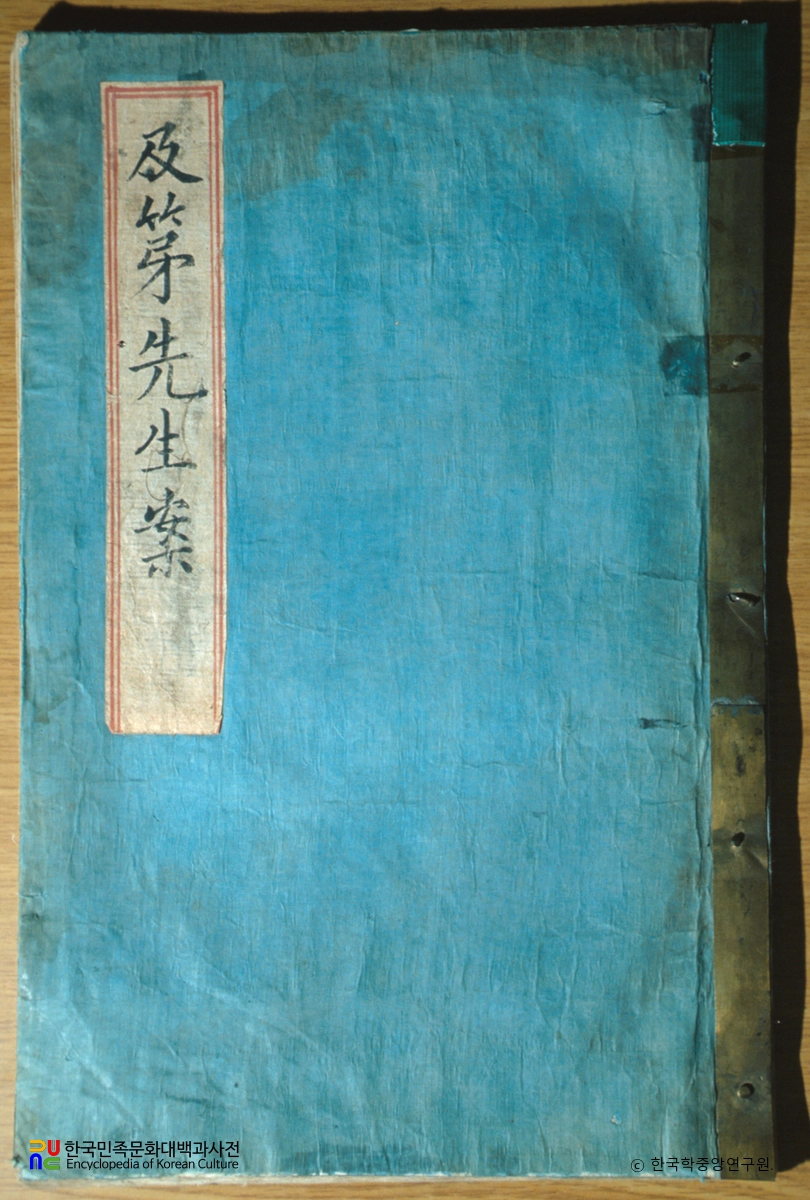 及第先生案
한국민족문화대백과사전
Encyclopedia of Korean Culture
ⓒ 한국학중앙연구원.